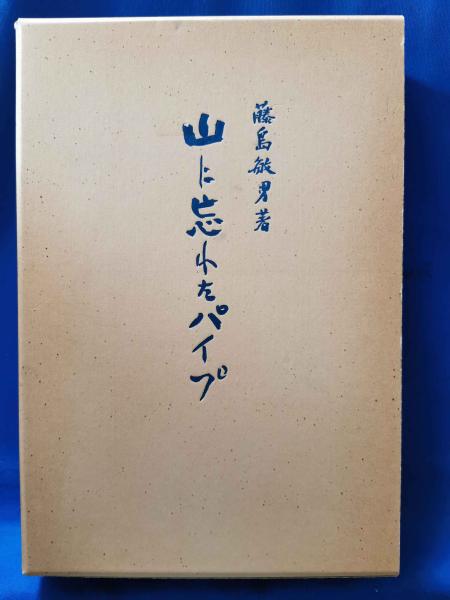 藤島敏男著
山に忘れたパイプ